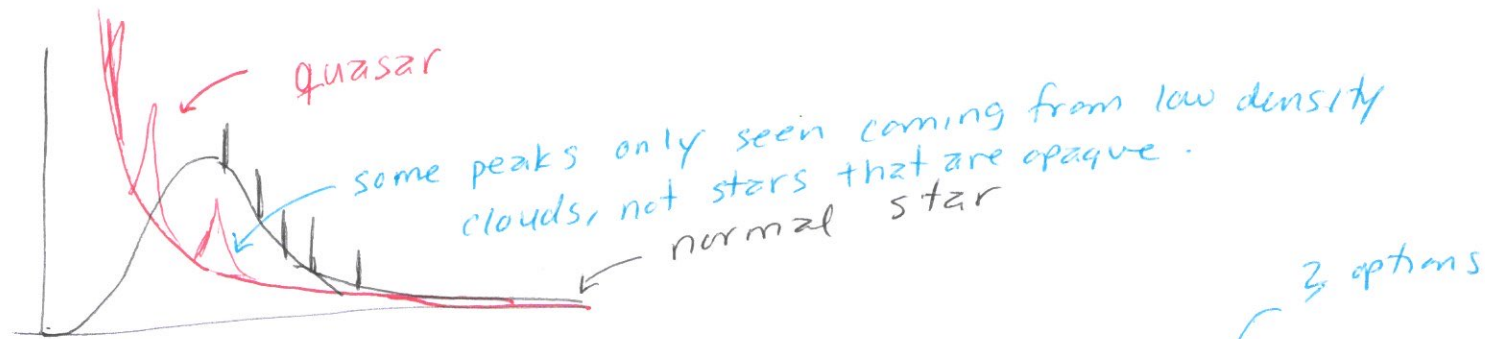 quasar
some peaks only seen coming from low density
clouds, not stars that are opaque.
normal star
options